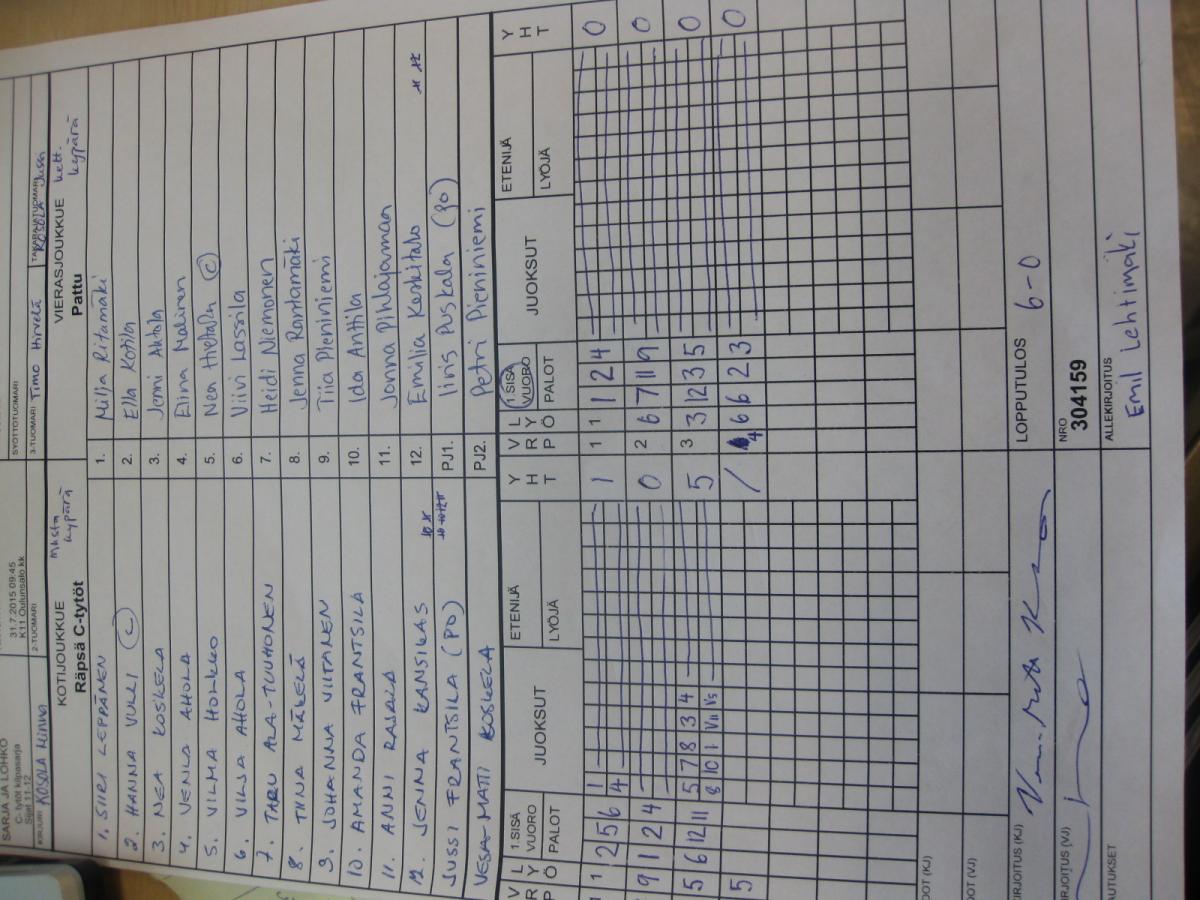 SARJA JA LOHKO
C- tytöt kilpasarja
Sijat 11-12
31.7.2015 09:45
K11 Oulunsalo kk
SYÖTTÖTUOMARI
KIRJURI KOSOLA Minna
2-TUOMARI
3-TUOMARI Timo Hirvelä
TAKARAJATUOMARI KOSOLA Jussi
KOTIJOUKKUE
Räpsä C-tytöt
musta kypärä
VIERASJOUKKUE
Pattu
kypärä
1. SIIRI LEPPÄNEN
1. Milja Ritamäki
2. HANNA VULLI (C)
2. Ella Kotila
3. NEA KOSKELA
3. Jemi Ahtola
4. VENLA AHOLA
4. Elina Malinen
5. VILMA HOLKKO
5. Nea Hietala (C)
6. VILJA AHOLA
6. Viivi Lassila
7. TARU ALA-TUUHONEN
7. Heidi Niemonen
8. TIINA MÄKELÄ
8. Jenna Rantamäki
9. JOHANNA VIITANEN
9. Tiia Pieniniemi
10. AMANDA FRANTSILA
10. Ida Anttila
11. ANNI RAJALA
11. Jonna Pihlajamaa
12. JENNA KANSIKAS
12. Emilia Keskitalo
JUSSI FRANTSILA (PO)
PJ1. Iiris Puskala (po)
VESA-MATTI KOSKELA
PJ2. Petri Pieniniemi
V R P L Y Ö 1.SISÄ VUORO PALOT JUOKSUT ETENIJÄ LYÖJÄ Y H T
V R P L Y Ö 1.SISÄ VUORO PALOT JUOKSUT ETENIJÄ LYÖJÄ Y H T
1 1 2 5 6 1 4 1
1 1 1 2 4 0
9 1 2 4 0
2 6 7 11 9 0
5 6 12 11 5 7 8 3 4 5
8 10 1 VII VS
3 3 12 3 5 0
5 /
4 6 6 2 3 0
LOPPUTULOS 6-0
NRO
304159
ALLEKIRJOITUS
Emil Lehtimäki